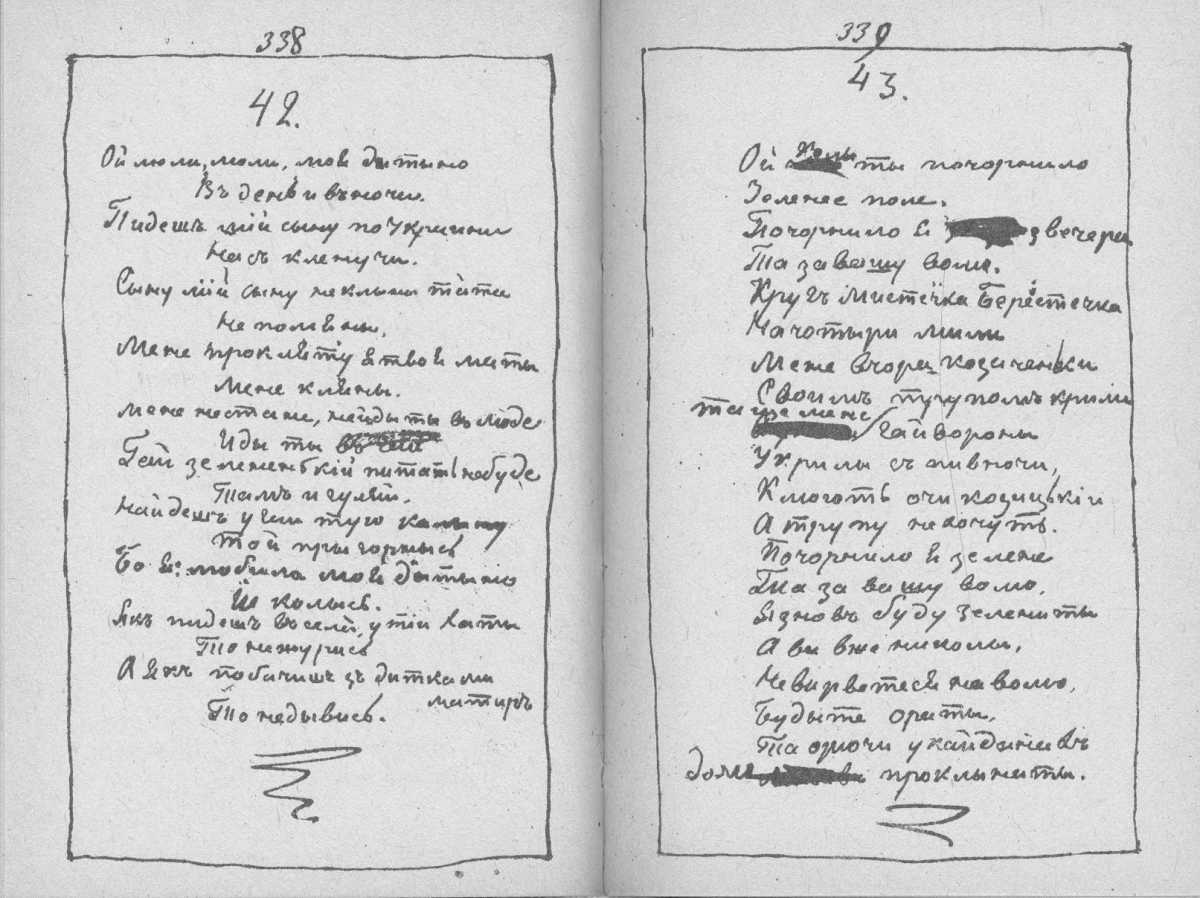 338
42.
Ой люли, люли, моя дытыно
Въ день и въночи.
Пидешъ мій сыну по Украини
Насъ кленучи.
Сыну мій сыну неклыны тата
Не помяны.
Мене прокляту я твоя маты
Мене кляны.
Мене нестане, нейды ты въ люде
Иды ты
Гай зелененькій питать небуде
Тамъ и гуляй.
Найдешъ у гаи тую калыну
Той прыгорнысь
Бо я любила моя дытыно
Ѣи колысь.
Якъ пидешъ въ села, у тіи хаты
То нежурись
А якъ побачишъ зъ дитками
матирь
То недывись.
339
43.
Ой чомъ ты почорнило
Зеленее поле.
Почорнило я звечера
Та за вашу волю.
Кругъ мистечка Берестечка
На чотыри мили
Мене вчора козаченьки
Своимъ трупомъ крили
та ще мене
Гайвороны
Укрилы съ пивночи,
Клюють очи козацькіи
А трупу нехочуть.
Почорнило я зелене
Та за вашу волю.
Я зновъ буду зелениты
А ви вже николы,
Невирвотеся на волю,
Будыте ораты,
Та орючи у кайданахъ
долю проклынаты.